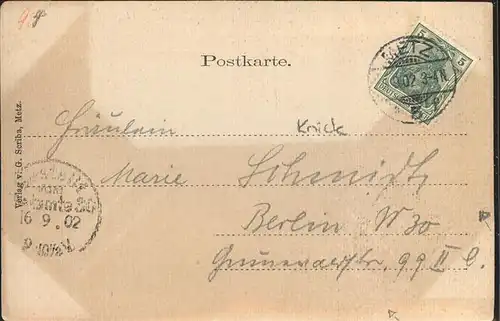 Postkarte.
METZ
5
5
02.
Fräulein
Knick
Marie Schmidt
Berlin W 30
Grunewaldstr. 99 II l.
16 9. 02
Verlag v. G. Scriba, Metz.